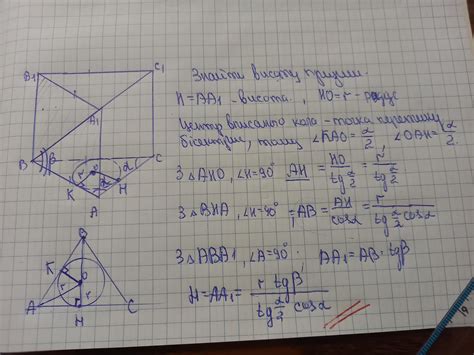 Знайти висоту призми.
H=AA₁ - висота, HO=r - радіус
Центр вписаного кола - точка перетину
бісектрис, тому ∠KAO=α/2, ∠OAH=α/2
З △AHO, ∠H=90° AH = HO/tg α/2 = r/tg α/2
З △BHA, ∠H=90°, AB = AH/cosα = r/(tg α/2 cosα)
З △ABA₁, ∠A=90°, AA₁=AB·tgβ
H=AA₁= r tgβ/(tg α/2 cosα)
B₁
C₁
A₁
B
β
C
r
O
α
K
H
α
A
B
K
O
r
r
r
A
H
C